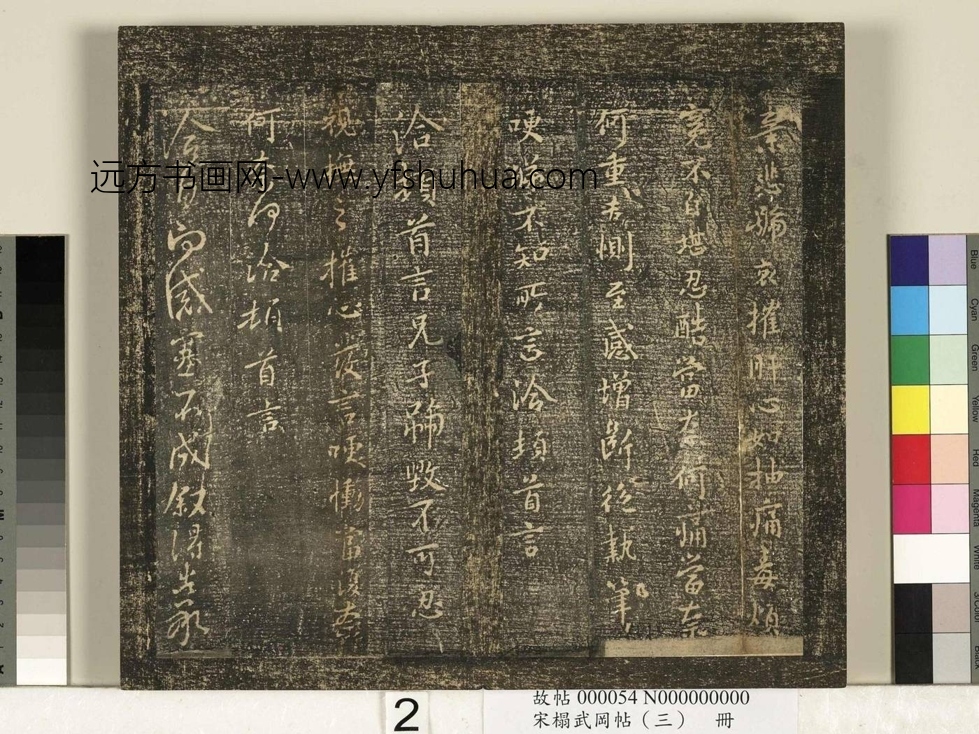 悲號哀摧肝心如抽痛毒煩
冤不自堪忍酷當奈何痛當奈
何重告惻至感增斷絕執筆
哽涕不知所言洽頓首言
洽頓首言兄子號毀不可忍
視撫之摧心發言哽慟當復奈
何奈何洽頓首言
感塞不成敘得
远方书画网-www.yfshuhua.com
Blue
Cyan
Green
Yellow
Red
Magenta
White
2
故帖 000054 N000000000
宋榻武岡帖（三） 冊